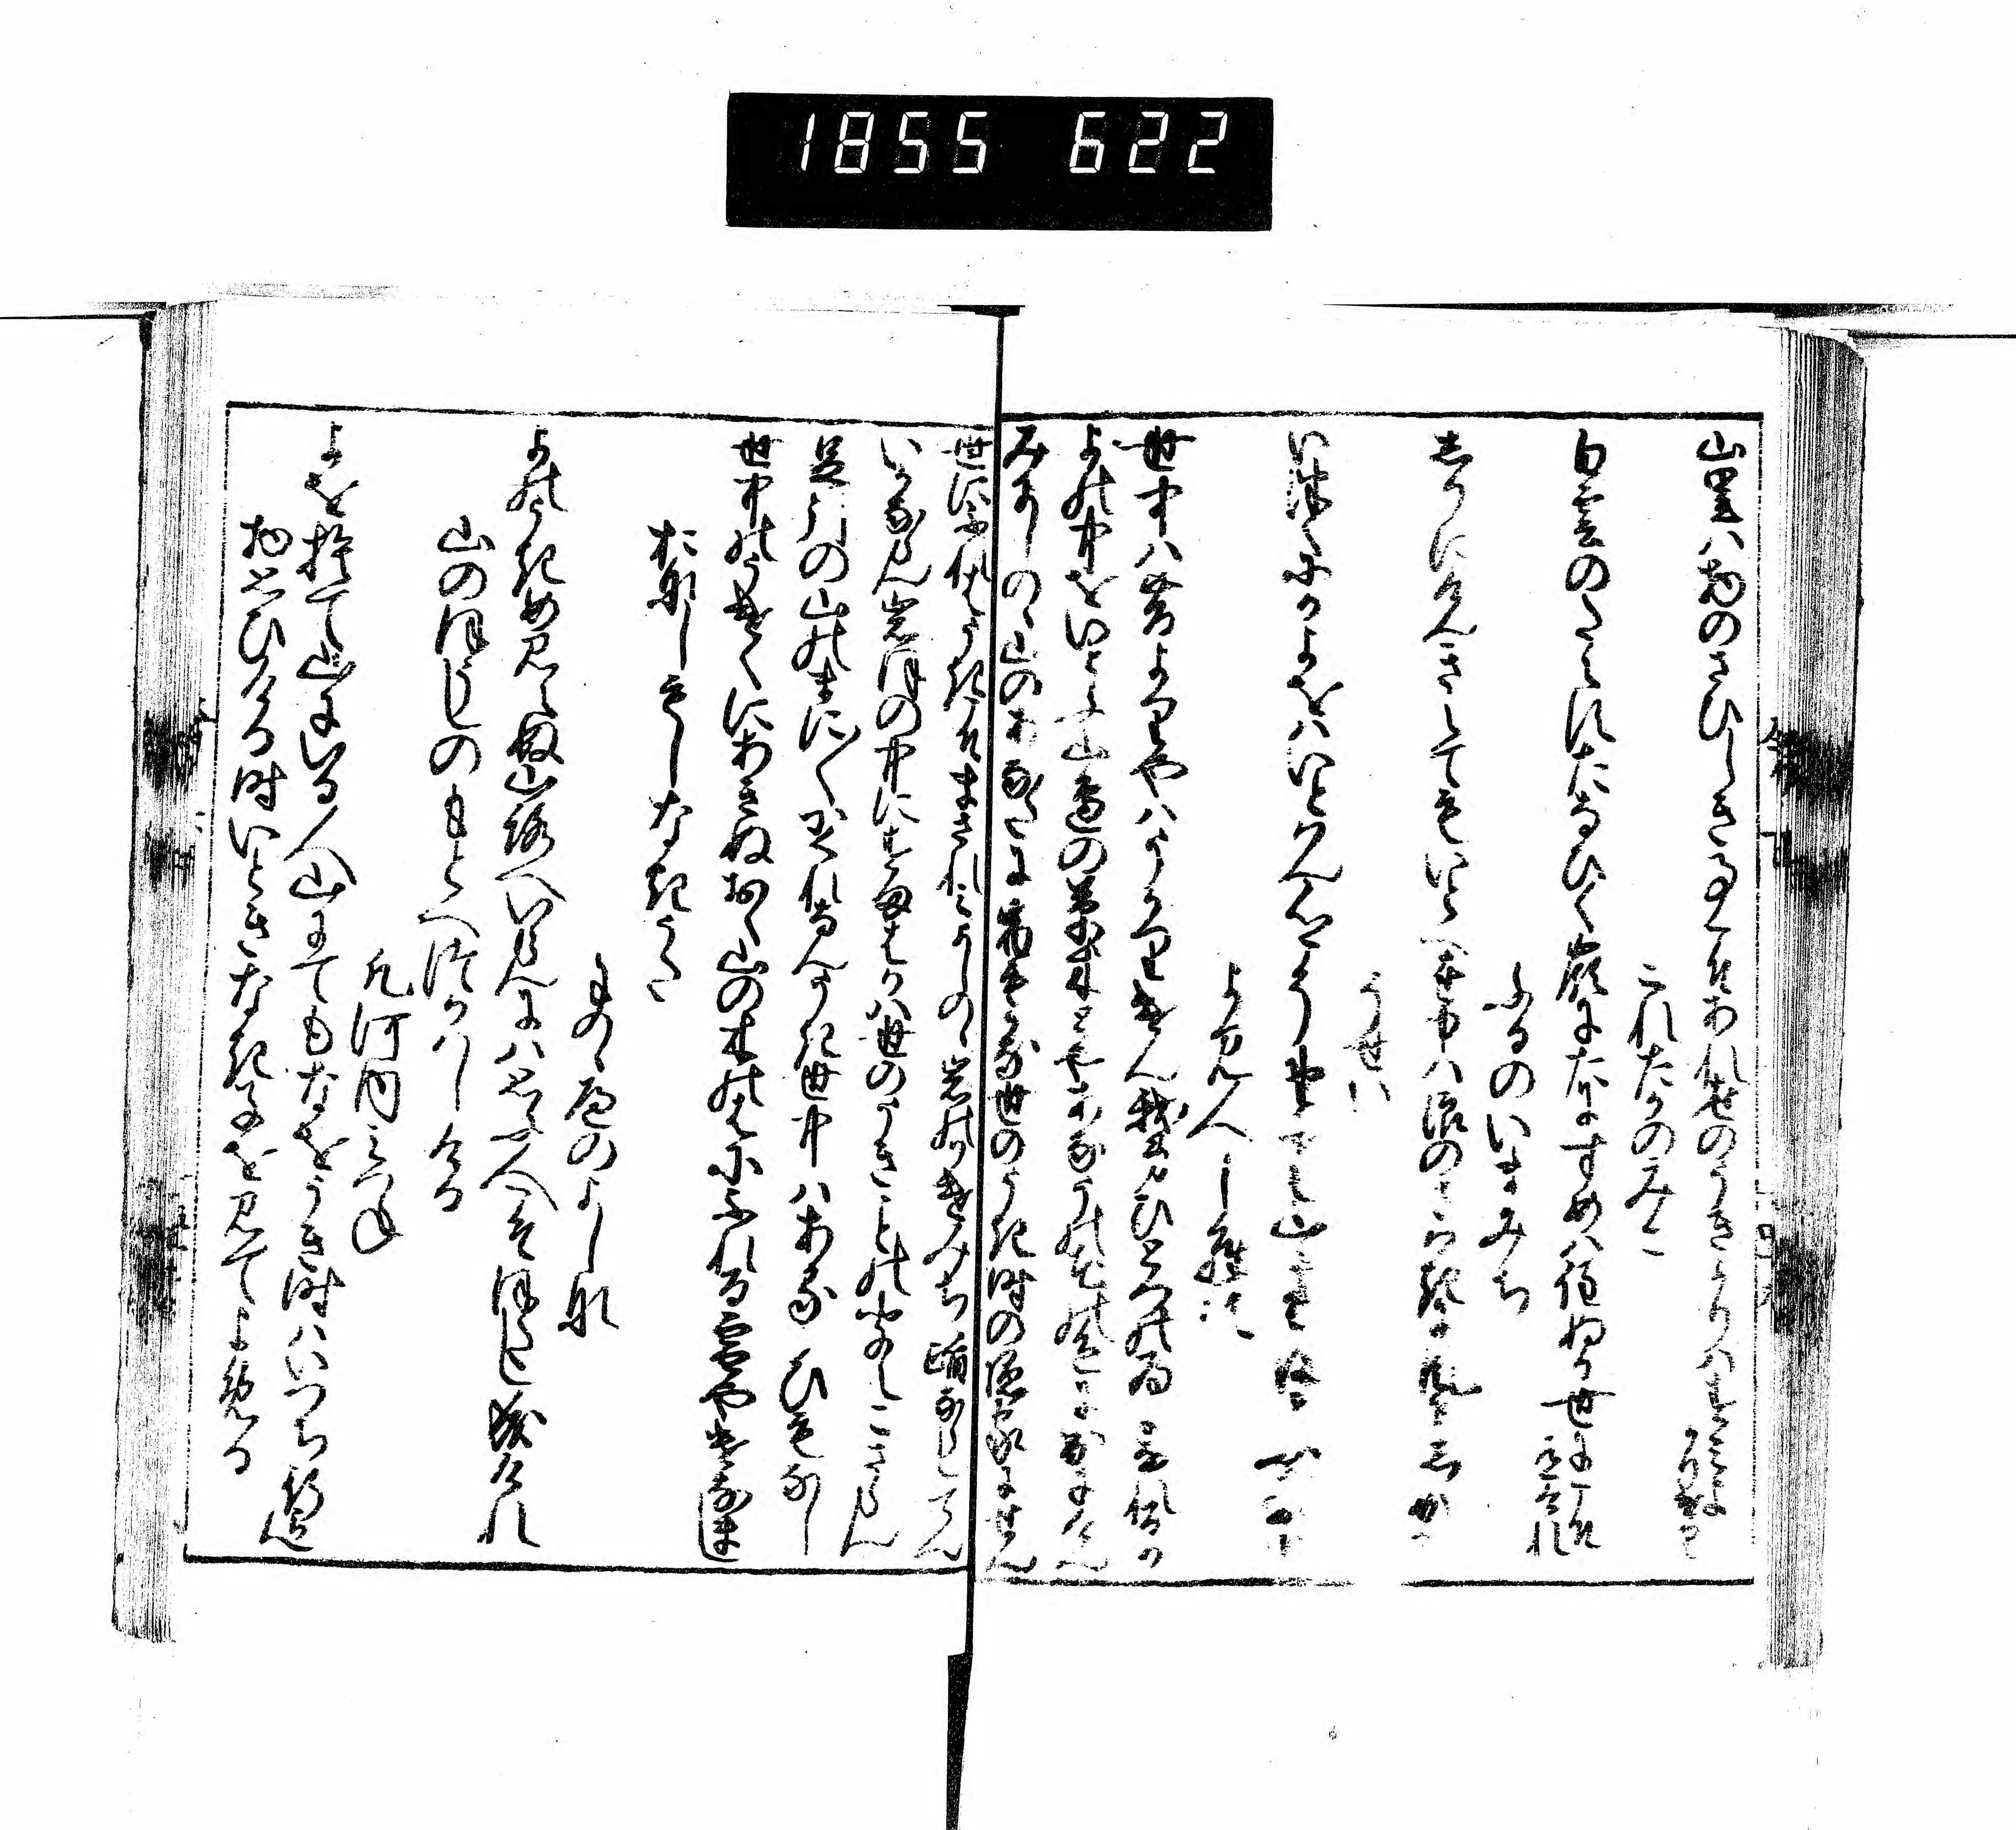 1855 622
山里ハ物のさひしき事こそあれ世のうきよりハすみよ
かりけり
これたかのみこ
白雲のたえすたなひく嶺にたにすめハ住ぬる世にこそ
有けれ
ふるのいまみち
しりにけんきゝてもいとへ世中ハ浪のさハきに風そしく
める
そせい
いつくにかよをハいとハん心こそ野にも山にもまとふへ
らなれ
よみ人しらす
世中ハ昔よりやハうかりけん我身ひとつの為になれるか
よの中をいとふ山邊の草木とやあなうの花の色に出にけん
みよしのゝ山のあなたに宿もかな世のうき時の隠家にせん
世にふれハうさこそまされみよしのゝ岩のかけみち踏ならしてん
いかならん岩ほの中にすまはかハ世のうきことの聞えこさらん
足引の山のまに〳〵かくれなんうき世中ハあるかひもなし
世中のうけくにあきぬおく山の木のはにふれる雪やけなまし
おなしもしなきうた
ものゝ邊のよしな
よのうきめ見えぬ山路へいらんにハ思ふ人こそほたし成けれ
山のほうしのもとへつかハしける
凡河内みつね
よを捨て山にいる人山にてもなをうき時ハいつち行覧
物思ひける時いときなき子を見てよめる